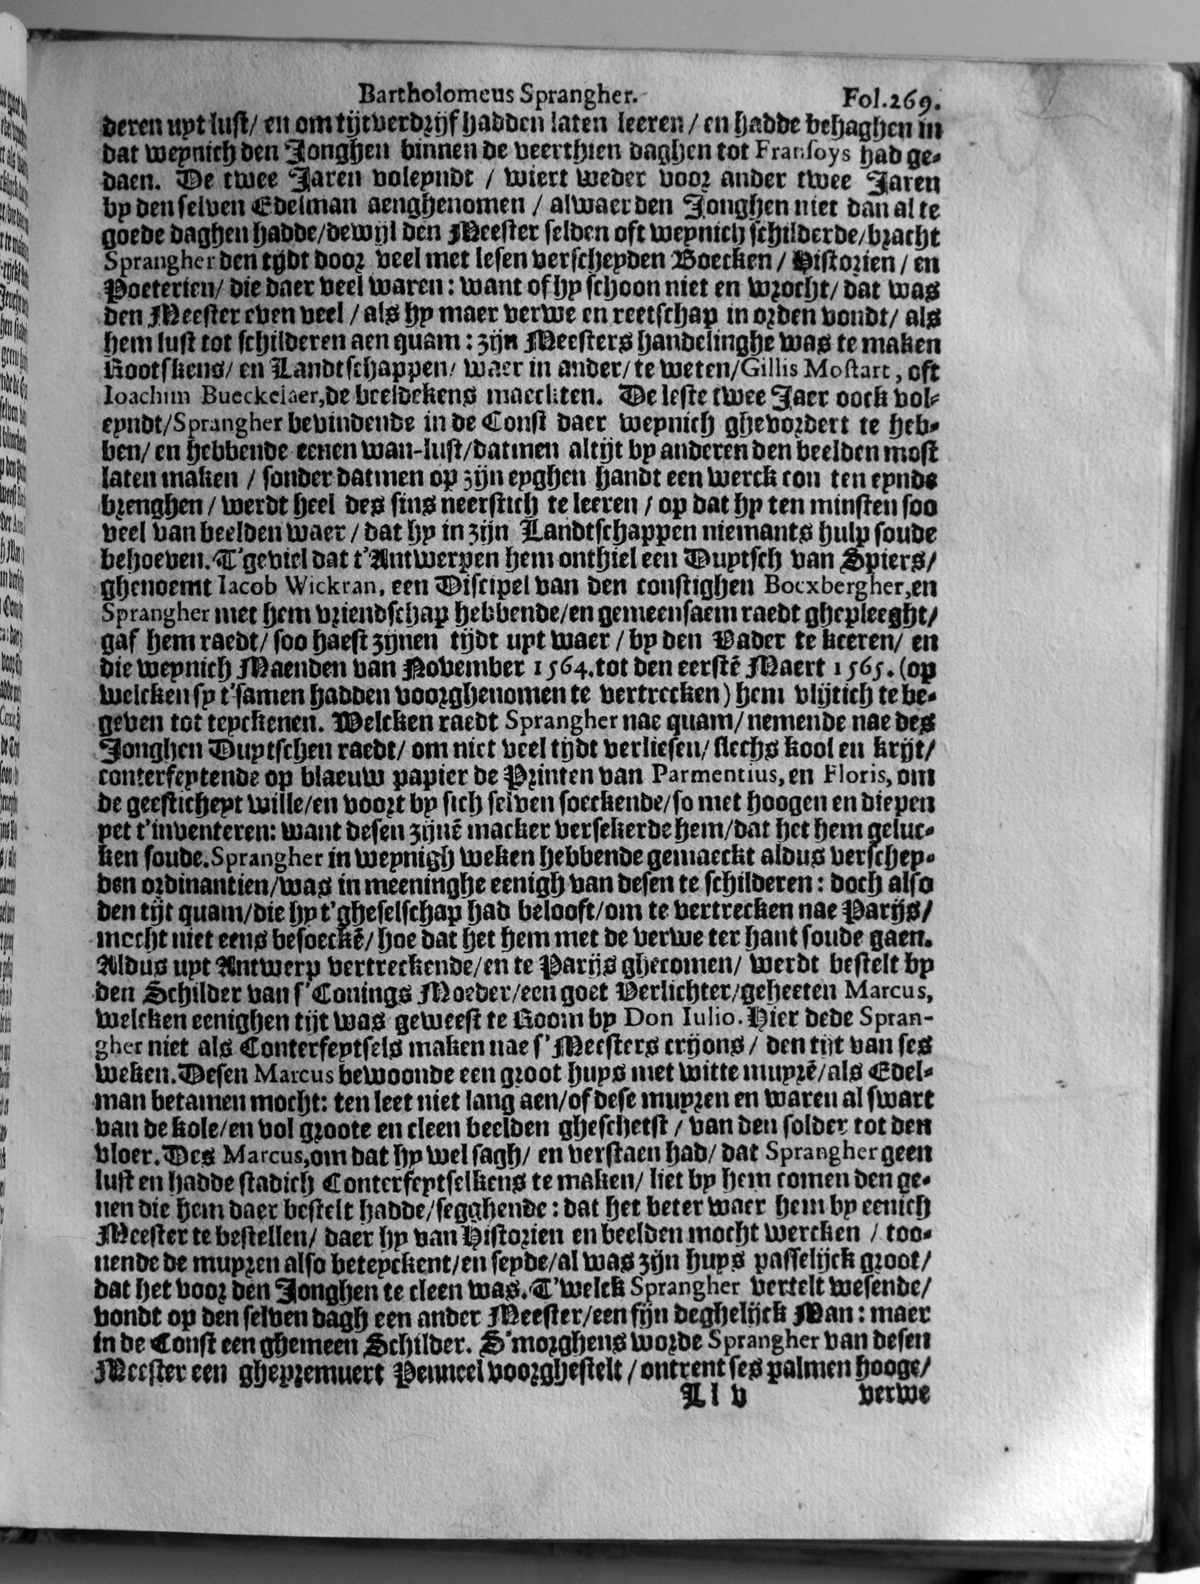 Bartholomeus Sprangher. Fol.269.
deren uyt lust/ en om tijtverdrijf hadden laten leeren / en hadde behaghen in
dat weynich den Jonghen binnen de veerthien daghen tot Fransoys had ge-
daen. De twee Jaren voleyndt / wiert weder voor ander twee Jaren
by den selven Edelman aenghenomen / alwaer den Jonghen niet dan al te
goede daghen hadde/dewijl den Meester selden oft weynich schilderde/bracht
Sprangher den tijdt door veel met lesen verscheyden Boecken / Historien / en
Poeterien/ die daer veel waren: want of hy schoon niet en wrocht/ dat was
den Meester even veel / als hy maer verwe en reetschap in orden vondt/ als
hem lust tot schilderen aen quam: zijn Meesters handelinghe was te maken
Rootskens/ en Landtschappen/ waer in ander/ te weten/Gillis Mostart, oft
Ioachim Bueckelaer,de beeldekens maeckten. De leste twee Jaer oock vol-
eyndt/Sprangher bevindende in de Const daer weynich ghevordert te heb-
ben/ en hebbende eenen wan-lust/datmen altijt by anderen den beelden most
laten maken / sonder datmen op zijn eyghen handt een werck con ten eynde
brenghen / werdt heel des sins neerstich te leeren / op dat hy ten minsten soo
veel van beelden waer / dat hy in zijn Landtschappen niemants hulp soude
behoeven. T'geviel dat t'Antwerpen hem onthiel een Duytsch van Spiers/
ghenoemt Iacob Wickran, een Discipel van den constighen Bocxbergher,en
Sprangher met hem vriendschap hebbende/en gemeensaem raedt ghepleeght/
gaf hem raedt/ soo haest zijnen tijdt uyt waer / by den Vader te keeren/ en
die weynich Maenden van November 1564. tot den eerstē Maert 1565. (op
welcken sy t'samen hadden voorghenomen te vertrecken) hem vlijtich te be-
geven tot teyckenen. Welcken raedt Sprangher nae quam/ nemende nae des
Jonghen Duytschen raedt/ om niet veel tijdt verliesen/ slechs kool en krijt/
conterfeytende op blaeuw papier de Printen van Parmentius, en Floris, om
de geesticheyt wille/en voort by sich selven soeckende/so met hoogen en diepen
yet t'inventeren: want desen zijnē macker versekerde hem/dat het hem geluc-
ken soude. Sprangher in weynigh weken hebbende gemaeckt aldus verschey-
den ordinantien/was in meeninghe eenigh van desen te schilderen: doch also
den tijt quam/die hy t'gheselschap had belooft/om te vertrecken nae Parijs/
mocht niet eens besoeckē/ hoe dat het hem met de verwe ter hant soude gaen.
Aldus uyt Antwerp vertreckende/en te Parijs ghecomen/ werdt bestelt by
den Schilder van s'Conings Moeder/een goet Verlichter/geheeten Marcus,
welcken eenighen tijt was geweest te Room by Don Iulio. Hier dede Spran-
gher niet als Conterfeytsels maken nae s'Meesters crijons / den tijt van ses
weken. Desen Marcus bewoonde een groot huys met witte muyrē/als Edel-
man betamen mocht: ten leet niet lang aen/of dese muyren en waren al swart
van de kole/en vol groote en cleen beelden gheschetst / van den solder tot den
vloer. Des Marcus,om dat hy wel sagh/ en verstaen had/ dat Sprangher geen
lust en hadde stadich Conterfeytselkens te maken/ liet by hem comen den ge-
nen die hem daer bestelt hadde/segghende: dat het beter waer hem by eenich
Meester te bestellen/ daer hy van Historien en beelden mocht wercken / too-
nende de muyren also beteyckent/en seyde/al was zijn huys passelijck groot/
dat het voor den Jonghen te cleen was. T'welck Sprangher vertelt wesende/
vondt op den selven dagh een ander Meester/een fijn deghelijck Man: maer
in de Const een ghemeen Schilder. S'morghens worde Sprangher van desen
Meester een ghepremuert Penneel voorghestelt / ontrent ses palmen hooge/
Ll v verwe